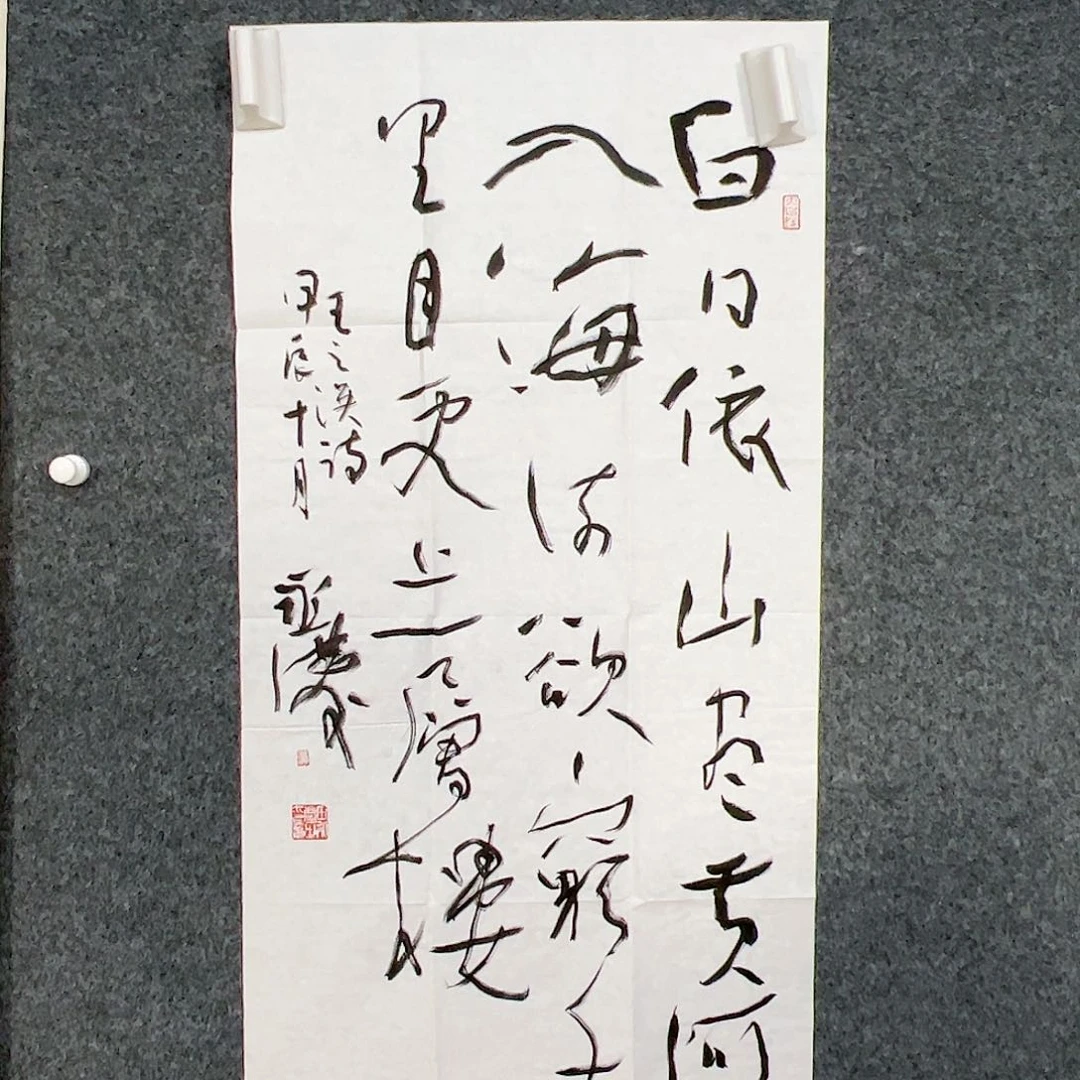 白日依山尽黄河
入海流欲窮千
里目更上一層樓
王之涣诗
甲辰十月